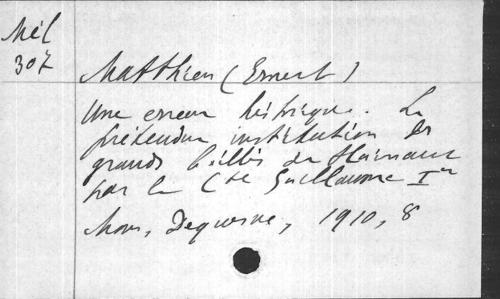 Mél
307
Matthieu (Ernest)
Une erreur historique. La
prétendue institution des
grands baillis du Hainaut
par le Cte Guillaume Ier
Mons, Dequesne, 1910, 8